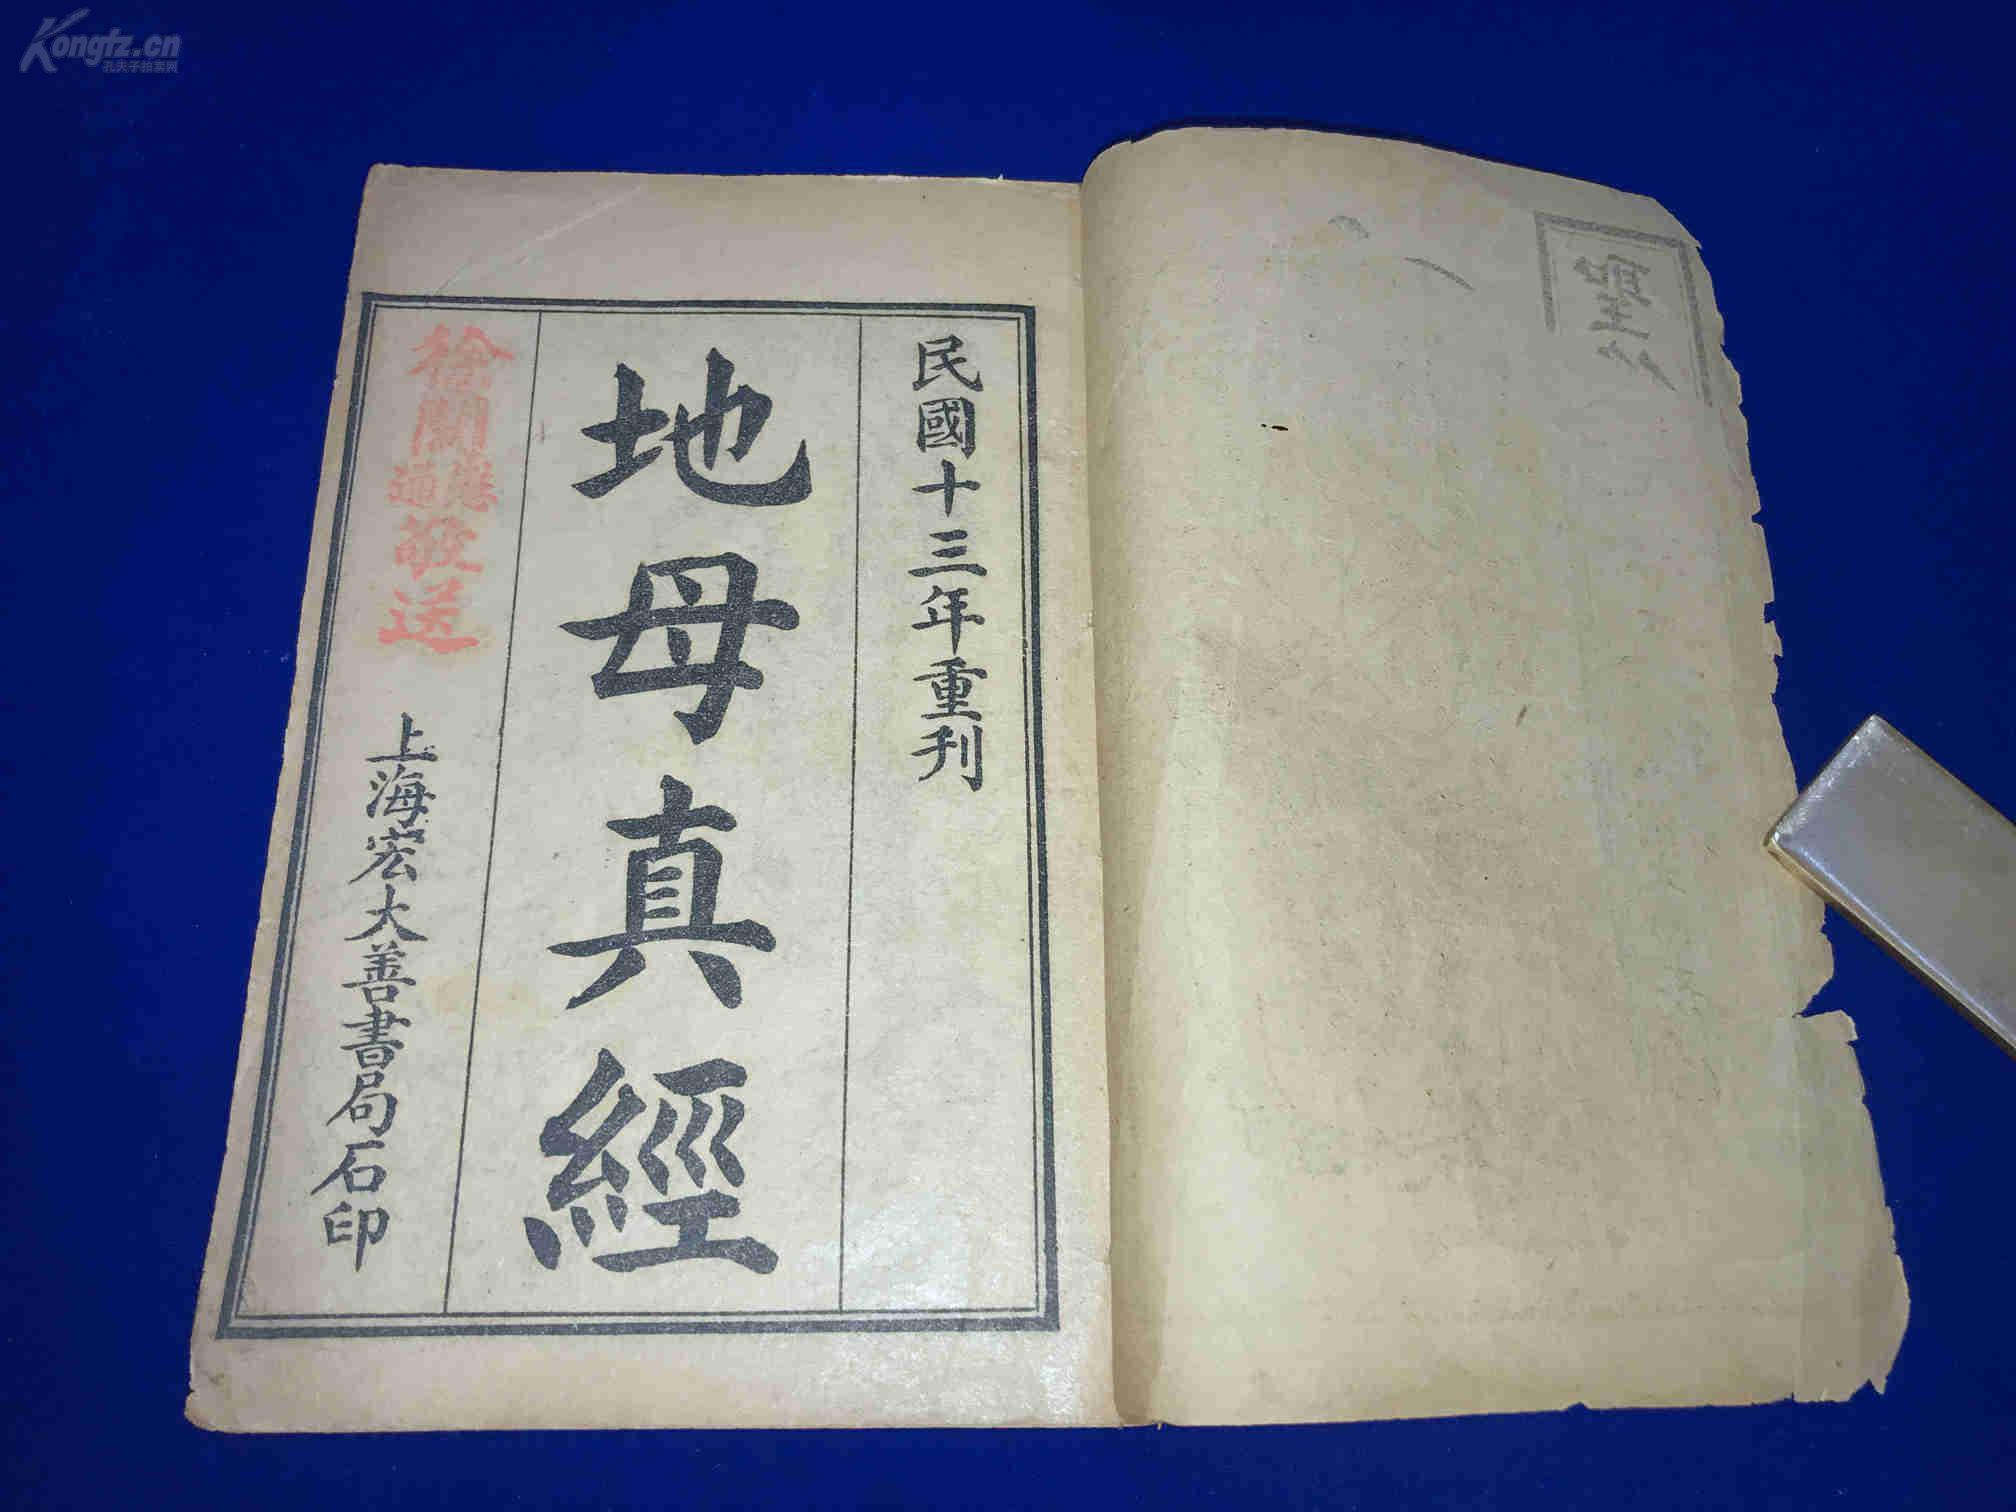 Kongfz.cn
孔夫子拍卖网
民國十三年重刊
地母真經
敬送
上海宏大善書局石印